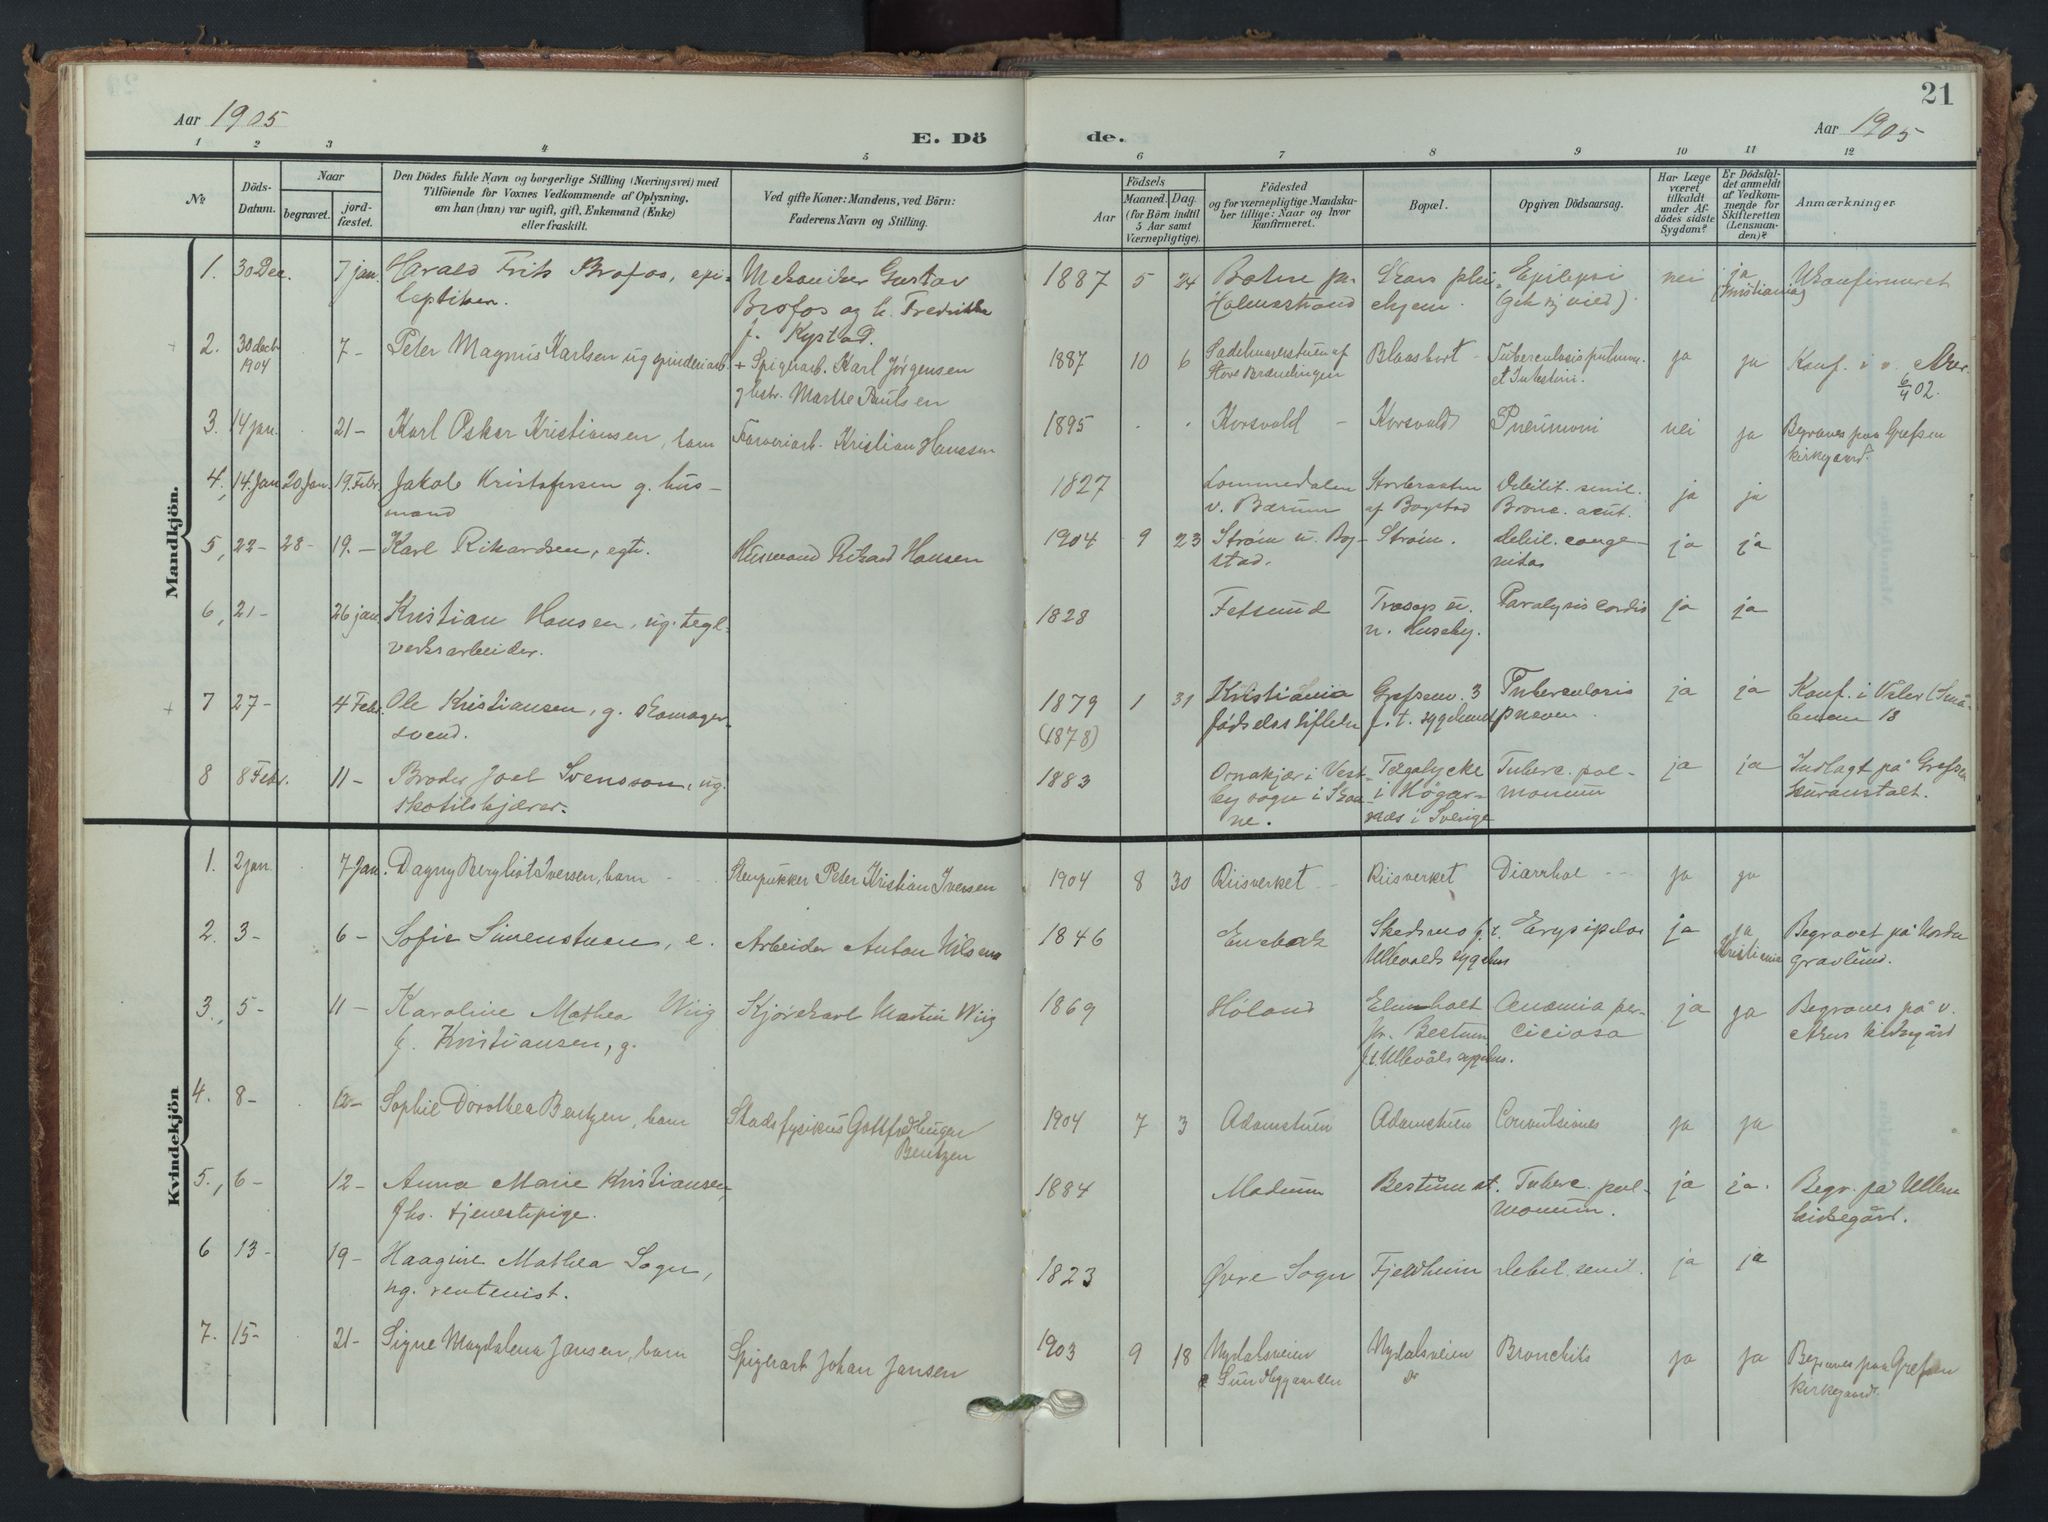 21
Aar 1905
E. Dö
de.
Aar 1905
1 2 3 4 5 6 7 8 9 10 11 12
No
Döds-
Datum.
Naar
begravet.
jord-
fæstet.
Den Dödes fulde Navn og borgerlige Stilling (Næringsvei) med
Tilföiende for Voxnes Vedkommende af Oplysning,
om han (hun) var ugift, gift, Enkemand (Enke)
eller fraskilt.
Ved gifte Koner: Mandens, ved Börn:
Faderens Navn og Stilling.
Födsels
Aar
Maaned. Dag.
(for Börn indtil
5 Aar samt
Værnepligtige).
Födested
og for værnepligtige Mandska-
ber tillige: Naar og hvor
konfirmeret.
Bopæl.
Opgiven Dödsaarsag.
Har Læge
været
tilkaldt
under Af-
dödes sidste
Sygdom?
Er Dödsfal-
det anmeldt
af Vedkom-
mende for
Skifteretten
(Lensman-
den)?
Anmærkninger
Mandkjön.
1. 30 Dec. 7 jan. Harald Frits Brofos, epi-
leptiker.
Mekaniker Gustav
Brofos og h. Fredrikke
f. Kystad.
1887 5 24
Botne pr.
Holmestrand
Skars plei-
ehjem.
Epilepsi
(gik ej ved).
nei
ja
(Kristiania)
Ukonfirmeret
2. 30 dec
1904
7 - Peter Magnus Karlsen ug spinderiarb.
+ Spigerarb. Karl Jørgensen
g hstr. Marthe Paulsen
1887 10 6
Sadelmagerstuen af
Store Brændingen
Blaasbort -
Tuberculosis pulmon.
et Intestini.
ja ja
Konf. i v. Aker
6/4 02.
3. 14 jan. 21 - Karl Oskar Kristiansen, barn
Farveriarb. Kristian Hanssen
1895 . .
Korsvold - Korsvold Pneumoni
nei ja
Begraves paa Grefsen
kirkegaard.
4, 14 Jan 20 Jan. 19. Febr. Jakob Kristofersen g. hus-
mand
1827
Lommedalen
v. Bærum
Storbraaten
af Bogstad
Debilit. senil.
Bronc. acut.
ja ja
5, 22 - 28 - 19. - Karl Rikardsen, egte.
Husmand Rikard Hansen
1904 9 23
Strøm u. Bog-
stad.
Strøm.
Debil. conge-
nitas
ja ja
6, 21 - 26 jan Kristian Hansen, ug. tegl-
verksarbeider.
1828
Fetsund
Træsop u.
n. Huseby.
Paralysis cordis
ja ja
7 27 - 4 Febr. Ole Kristiansen, g. skomager-
svend.
1879 1 31
(1878)
Kristiania
fødselsstiftelse
Grefsenv. 3
f. t. sygehuset
Tuberculosis
pneum.
ja ja
Konf. i Valer (Smaa-
lenene 18
8 8 Febr. 11 - Broder Joel Svensson, ug.
skotilskjærer.
1883
Ornakjær i Vest-
by sogn i Skaa-
ne.
Tegalycke
i Høgar-
næs i Sverige
Tuberc. pul-
monum
ja ja
Indlagt på Grefsen
kuranstalt.
Kvindekjön
1. 2 jan 7 Jan. Dagny Bergliot Iversen, barn
Stenpukker Peter Kristian Iversen
1904 8 30
Riisverket - Riisverket Diarrhoe - -
ja ja
2. 3 - 6 - Sofie Simenstuen, e.
Arbeider Anton Nilsens
1846
Enebak
Skedsmo f. t.
Ullevolds sygehus
Erysipelas
ja
ja
Kristiania
Begravet på Nordre
gravlund.
3., 5 - 11 - Karoline Mathea Wiig
f. Kristiansen, g.
Kjørekarl Martin Wiig
1869
Høland
Elmholt
pr. Bestum
f. t. Ullevåls sygehus.
Anæmia per-
niciosa
ja ja
Begraves på v.
Akers kirkegård
4. 8 - 12 - Sophie Dorothea Bentzen, barn
Stadsfysikus Gottfred Eugen
Bentzen
1904 7 3
Adamstuen Adamstuen Convulsiones
ja ja
5., 6 - 12 - Anna Marie Kristiansen,
fhv. tjenestepige.
1884
Modum Bestum st.
Tuberc. pul-
monum.
ja ja.
Begr. på Ullern
kirkegård.
6 13 - 19 - Haagine Mathea Sogn,
ug. rentenist.
1823
Øvre Sogn Fjeldheim Debil. senil.
ja ja
7. 15 - 21 - Signe Magdalena Jansen, barn
Spigerarb Johan Jansen
1903 9 18
Nydalsveien
Sundbyggaarden
Nydalsveien
Bronchitis
ja ja
Begraves paa Grefsen
kirkegaard.